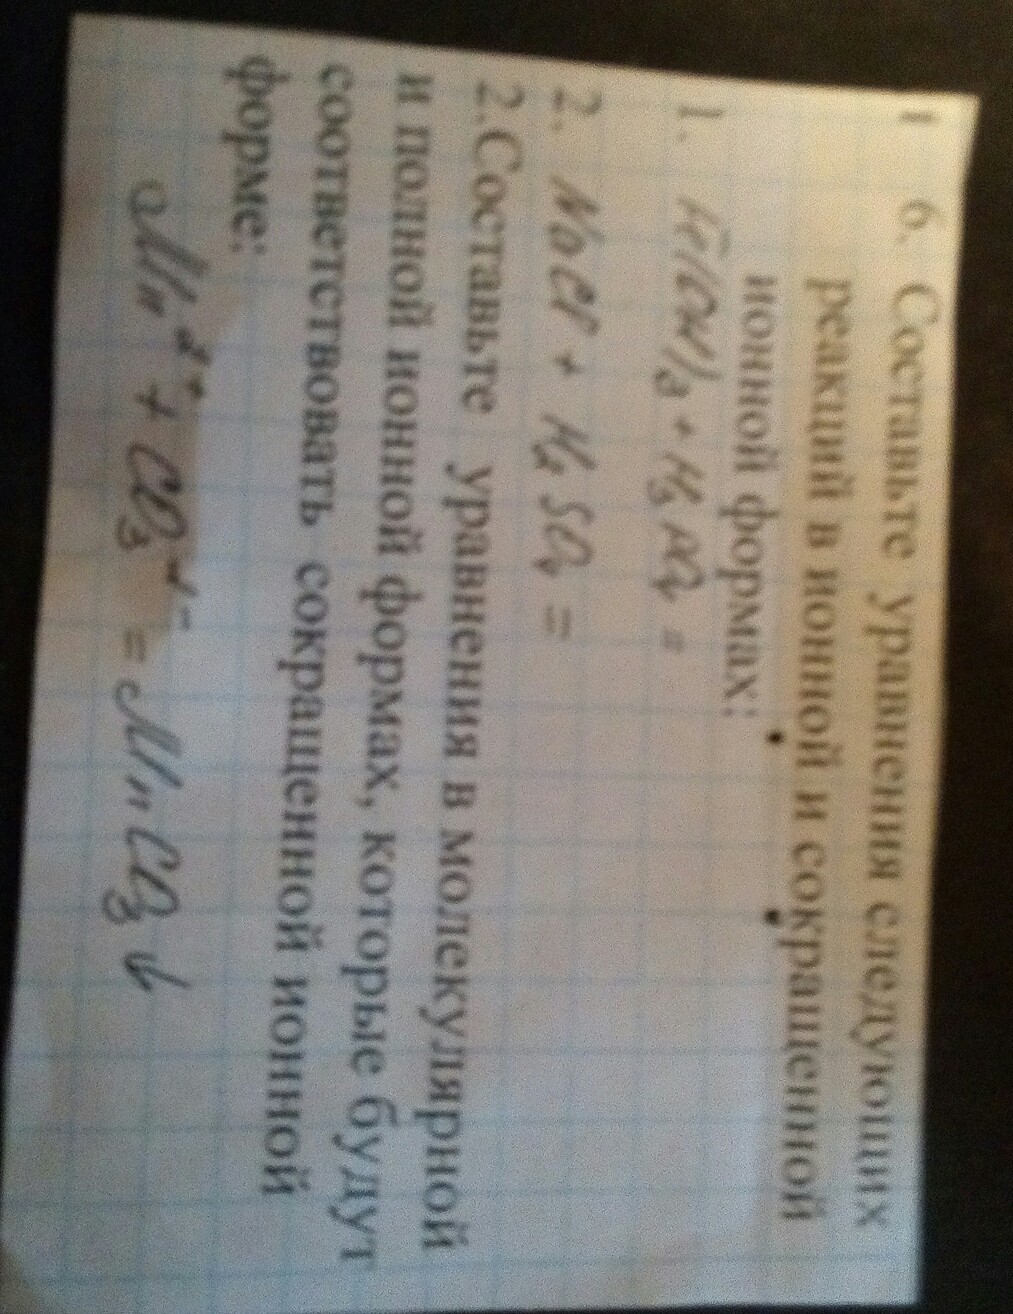 1 6. Составьте уравнения следующих
реакций в ионной и сокращенной
ионной формах:
1. (OH)3 + H3PO4 =
2. NaCl + H2SO4 =
2.Составьте уравнения в молекулярной
и полной ионной формах, которые будут
соответствовать сокращенной ионной
форме:
Mn²⁺ + CO3²⁻ = MnCO3↓